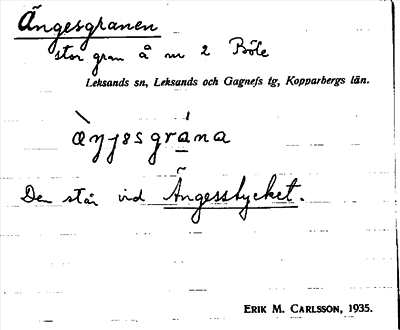 Ängesgranen
stor gran å nr 2 Böle
Leksands sn, Leksands och Gagnefs tg, Kopparbergs län.
æŋjəsgrána
Den står vid Ängesstycket.
ERIK M. CARLSSON, 1935.